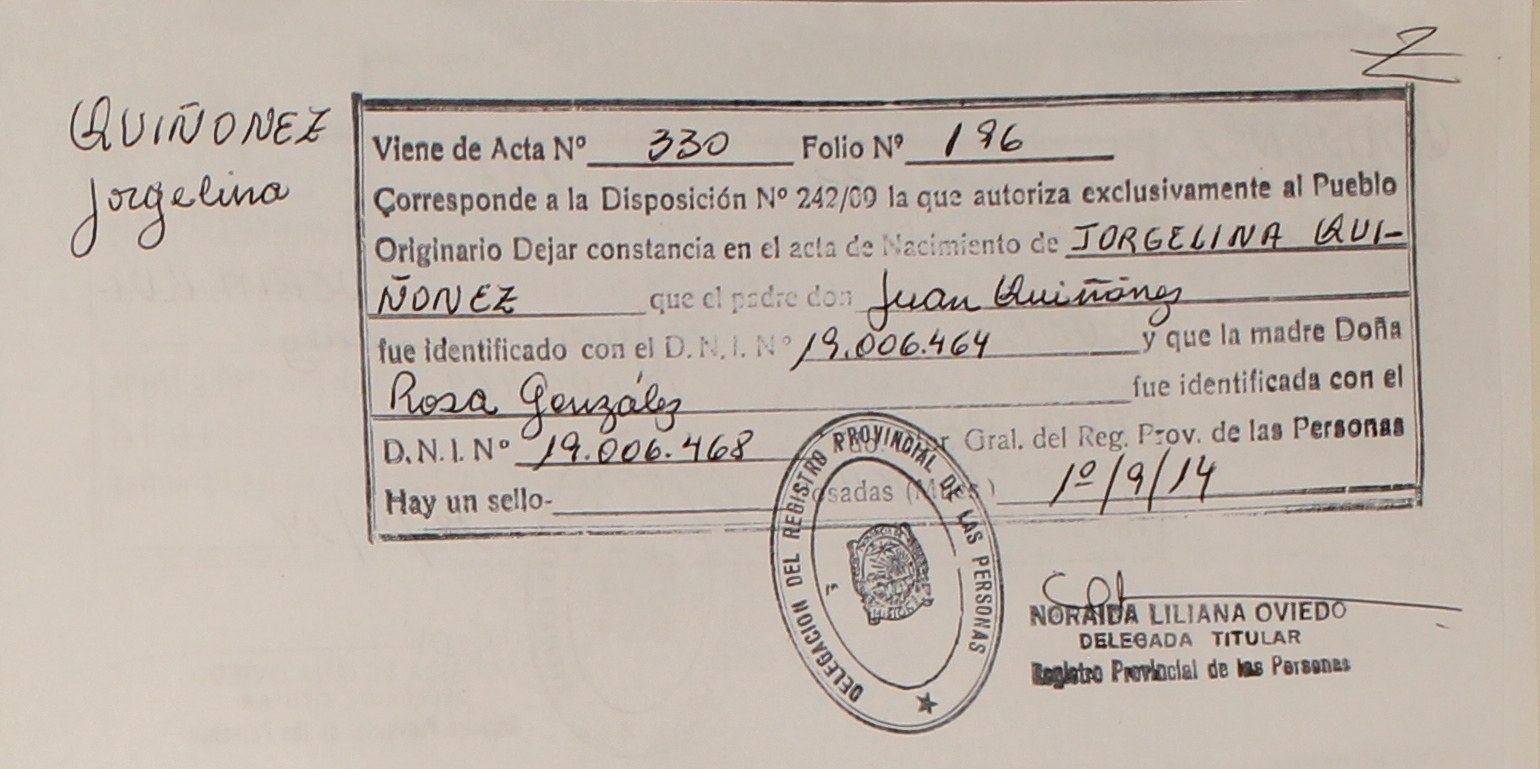 QUIÑONEZ
Jorgelina
Viene de Acta Nº 330 Folio Nº 196
Corresponde a la Disposición Nº 242/09 la que autoriza exclusivamente al Pueblo
Originario Dejar constancia en el acta de Nacimiento de JORGELINA QUI-
ÑONEZ que el padre don Juan Quiñónez
fue identificado con el D. N. I. Nº 19.006.464 y que la madre Doña
Rosa González fue identificada con el
D. N. I. Nº 19.006.468 Gral. del Reg. Prov. de las Personas
Hay un sello- Posadas (Mnes) 1º/9/14
DELEGACION DEL REGISTRO PROVINCIAL DE LAS PERSONAS
NORAIDA LILIANA OVIEDO
DELEGADA TITULAR
Registro Provincial de las Personas